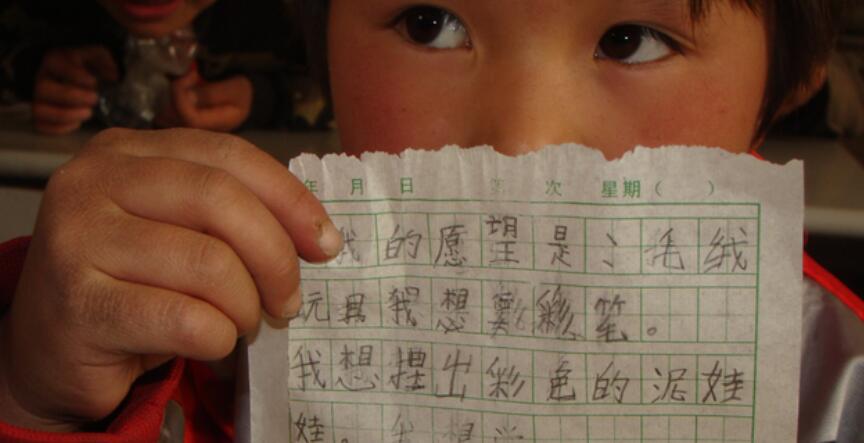 年 月 日 第 次 星期( )
我的愿望是 毛绒
玩具我想 彩笔。
我想捏出彩色的泥娃
娃。我想